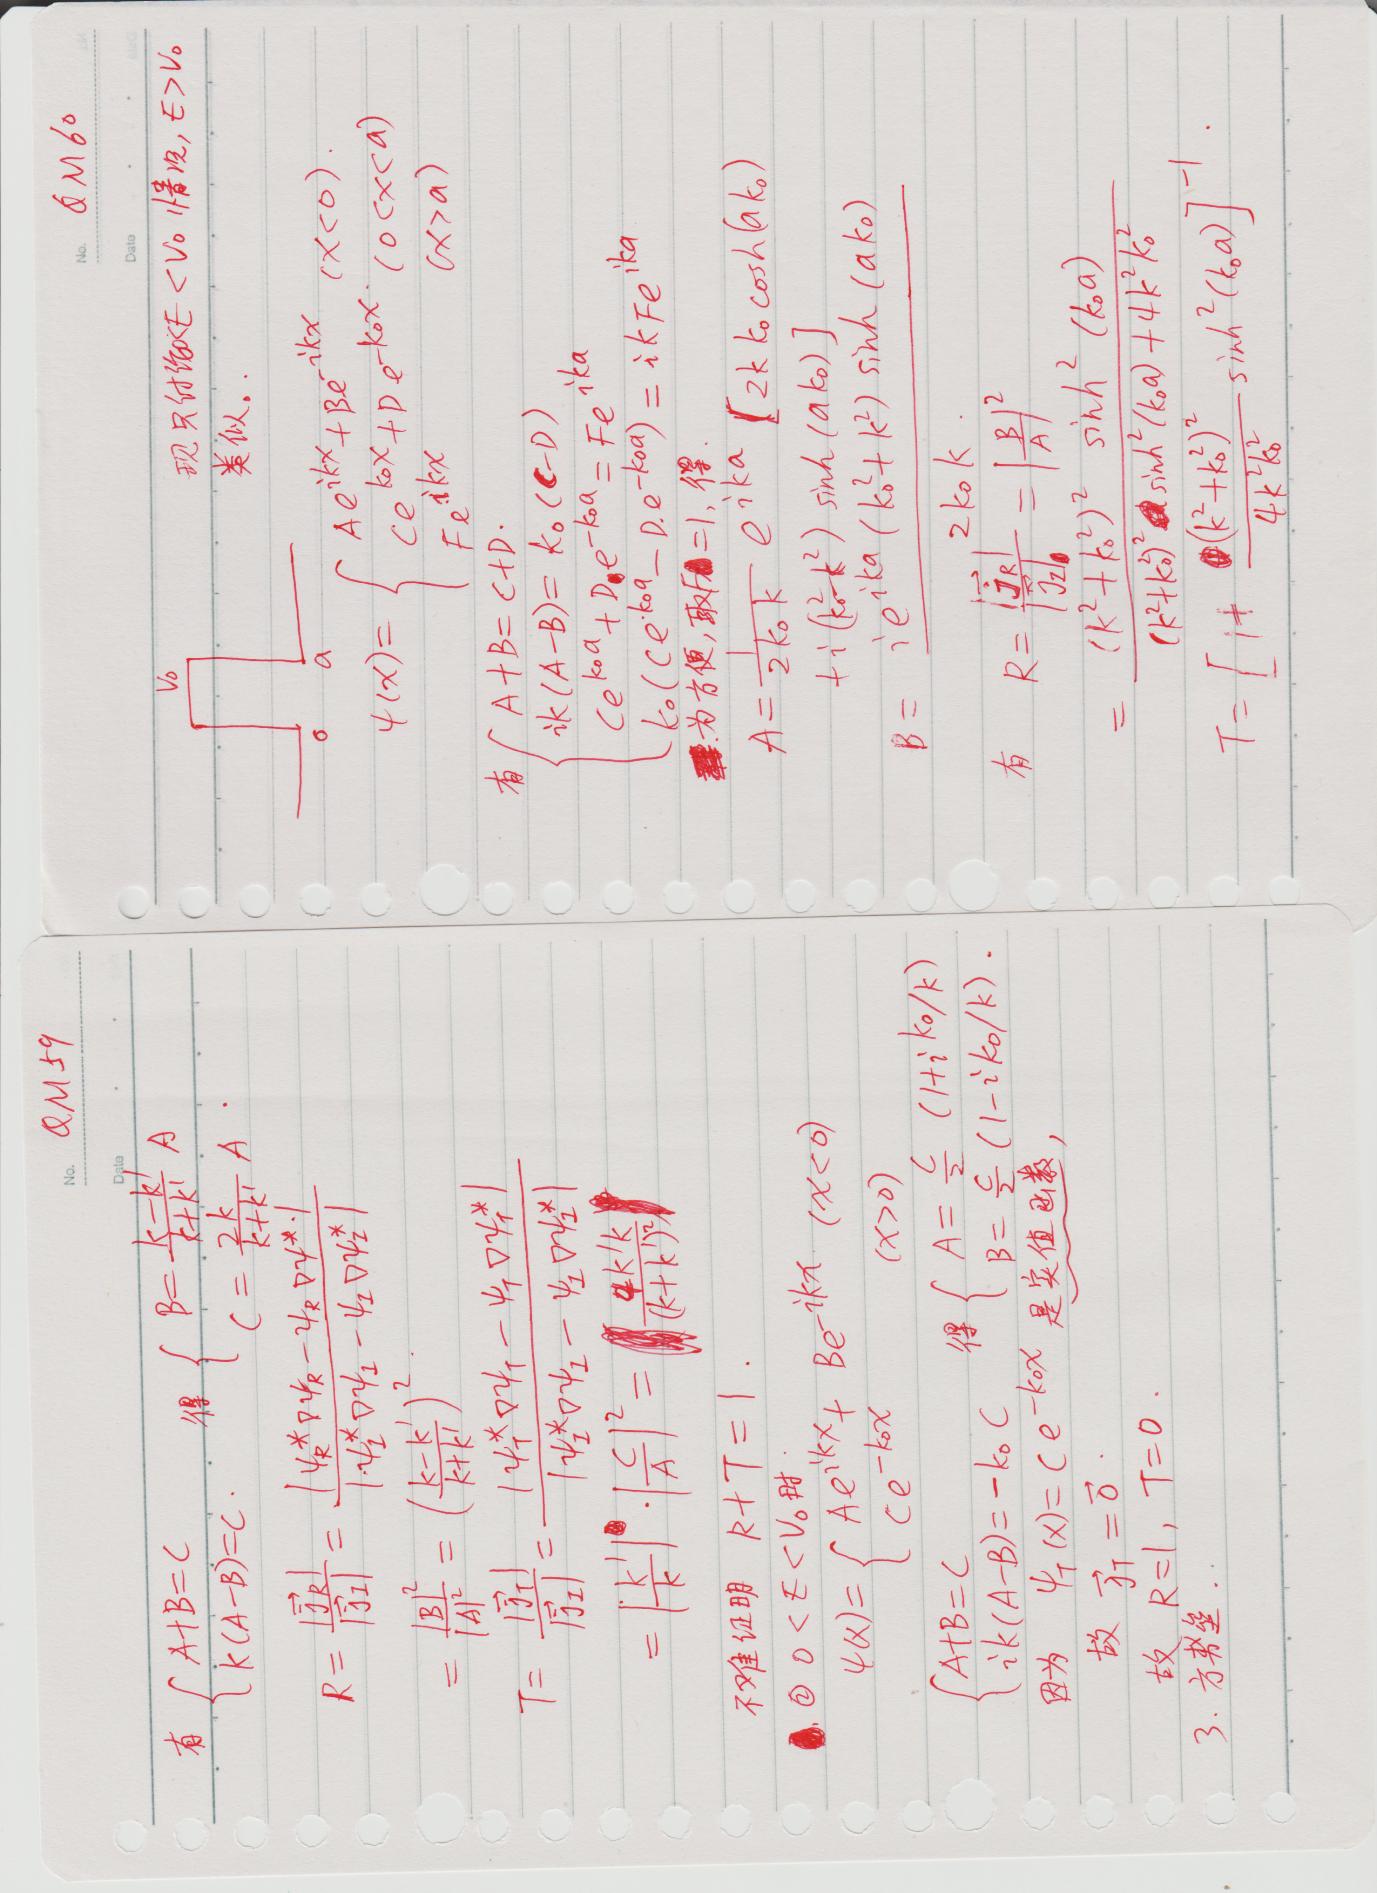 No. QM59
Date
有 { A+B=C
k(A-B)=C.
得 { B= \frac{k-k'}{k+k'} A
C= \frac{2k}{k+k'} A.
R= \frac{|\vec{j}_R|}{|\vec{j}_I|} = \frac{|ψ_R^*∇ψ_R-ψ_R∇ψ^*|}{|ψ_I^*∇ψ_I-ψ_I∇ψ_I^*|}
= \frac{|B|^2}{|A|^2} = (\frac{k-k'}{k+k'})^2.
T= \frac{|\vec{j}_T|}{|\vec{j}_I|} = \frac{|ψ_T^*∇ψ_T-ψ_T∇ψ_T^*|}{|ψ_I^*∇ψ_I-ψ_I∇ψ_I^*|}
= |\frac{k'}{k}|·|\frac{C}{A}|^2 = \frac{4k'k}{(k+k')^2}
不难证明 R+T=1.
② 0<E<V_0时.
ψ(x)= { Ae^{ikx}+Be^{-ikx} (x<0)
Ce^{-k_0x} (x>0)
{ A+B=C
ik(A-B)=-k_0C
得 { A= \frac{C}{2} (1+ik_0/k)
B= \frac{C}{2} (1-ik_0/k).
因为 ψ_T(x)=Ce^{-k_0x} 是实值函数,
故 \vec{j}_T=\vec{0}.
故 R=1, T=0.
3. 方势垒..
No. QM60
Date
现只讨论0<E<V_0情况, E>V_0
类似..
V_0
0 a
ψ(x)= { Ae^{ikx}+Be^{-ikx} (x<0).
Ce^{k_0x}+De^{-k_0x} (0<x<a)
Fe^{ikx} (x>a)
有 { A+B=C+D.
ik(A-B)=k_0(C-D)
Ce^{k_0a}+De^{-k_0a}=Fe^{ika}
k_0(Ce^{k_0a}-De^{-k_0a})=ikFe^{ika}
为方便,取F=1,得.
A= \frac{1}{2k_0k} e^{ika} [2kk_0cosh(ak_0)
+i(k_0^2-k^2) sinh(ak_0)]
B= \frac{ie^{ika}(k_0^2+k^2) sinh(ak_0)}{2k_0k}.
有 R= \frac{|\vec{j}_R|}{|\vec{j}_I|} = |\frac{B}{A}|^2
= \frac{(k^2+k_0^2)^2 sinh^2(k_0a)}{(k^2+k_0^2)^2 sinh^2(k_0a)+4k^2k_0^2}
T= [1+ \frac{(k^2+k_0^2)^2}{4k^2k_0^2} sinh^2(k_0a)]^{-1}.